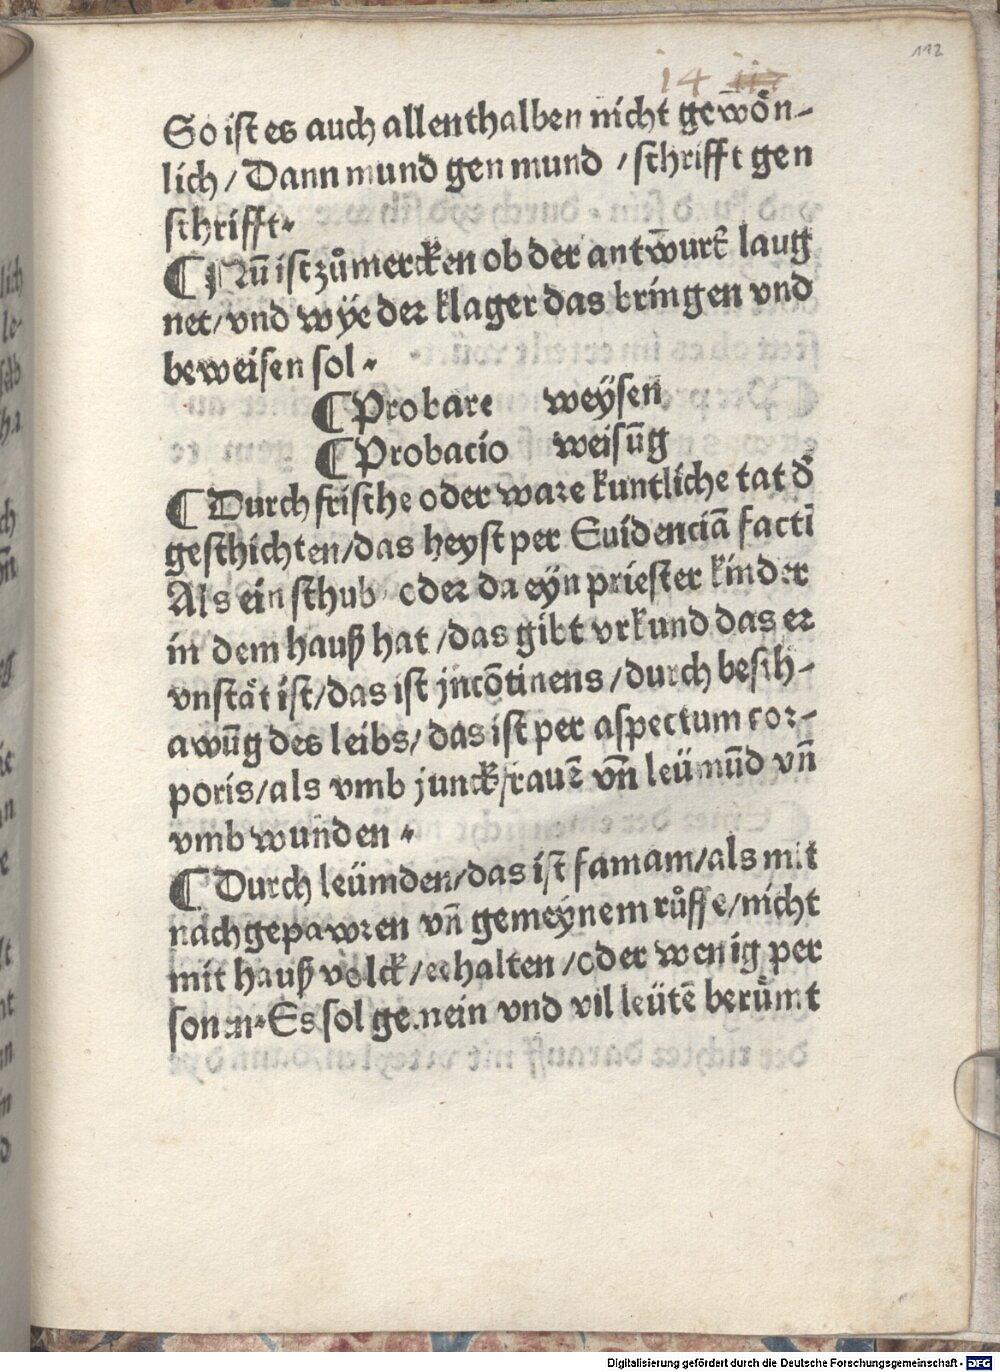 112
14 112
So ist es auch allenthalben nicht gewȯn-
lich / Dann mund gen mund / schrifft gen
schrifft.
¶ Nū ist zů mercken ob der antwurt̄ laug
net / vnd wÿe der klager das bringen vnd
beweisen sol.
¶ Probare weÿsen
¶ Probacio weisūg
¶ Durch frische oder ware kuntliche tat d̄
geschichten / das heyst per Euidenciā facti
Als ein schub oder da eyn priester kinder
in dem hauß hat / das gibt vrkund das er
vnstät ist / das ist jncōtinens / durch besch-
awūg des leibs / das ist per aspectum cor-
poris / als vmb junckfrauē vn̄ leümūd vn̄
vmb wunden.
¶ Durch leümden / das ist famam / als mit
nachgepawren vn̄ gemeynem růffe / nicht
mit hauß volck / eehalten / oder wenig per
sonen. Es sol gemein vnd vil leütē berümt
Digitalisierung gefördert durch die Deutsche Forschungsgemeinschaft - DFG